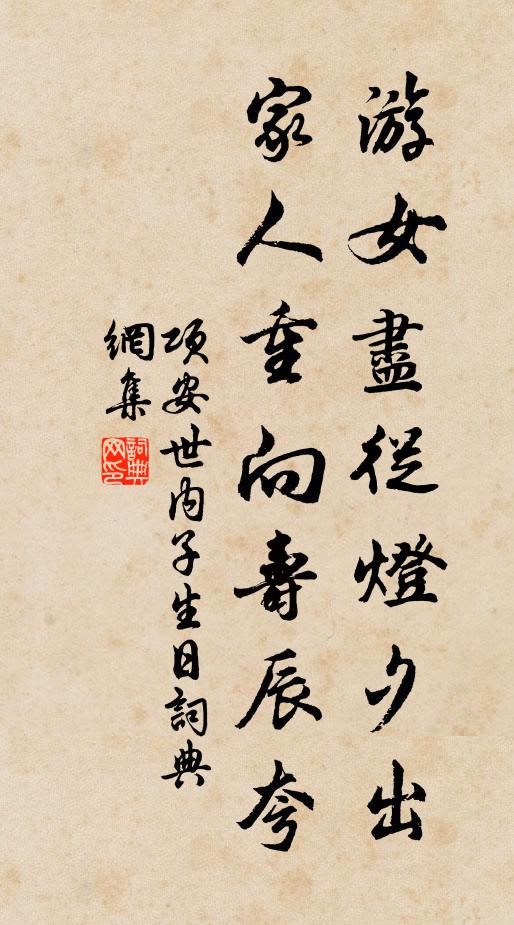 游女盡從燈夕出
家人重向壽辰夸
項安世内子生日詞典
網集
詞典
网印